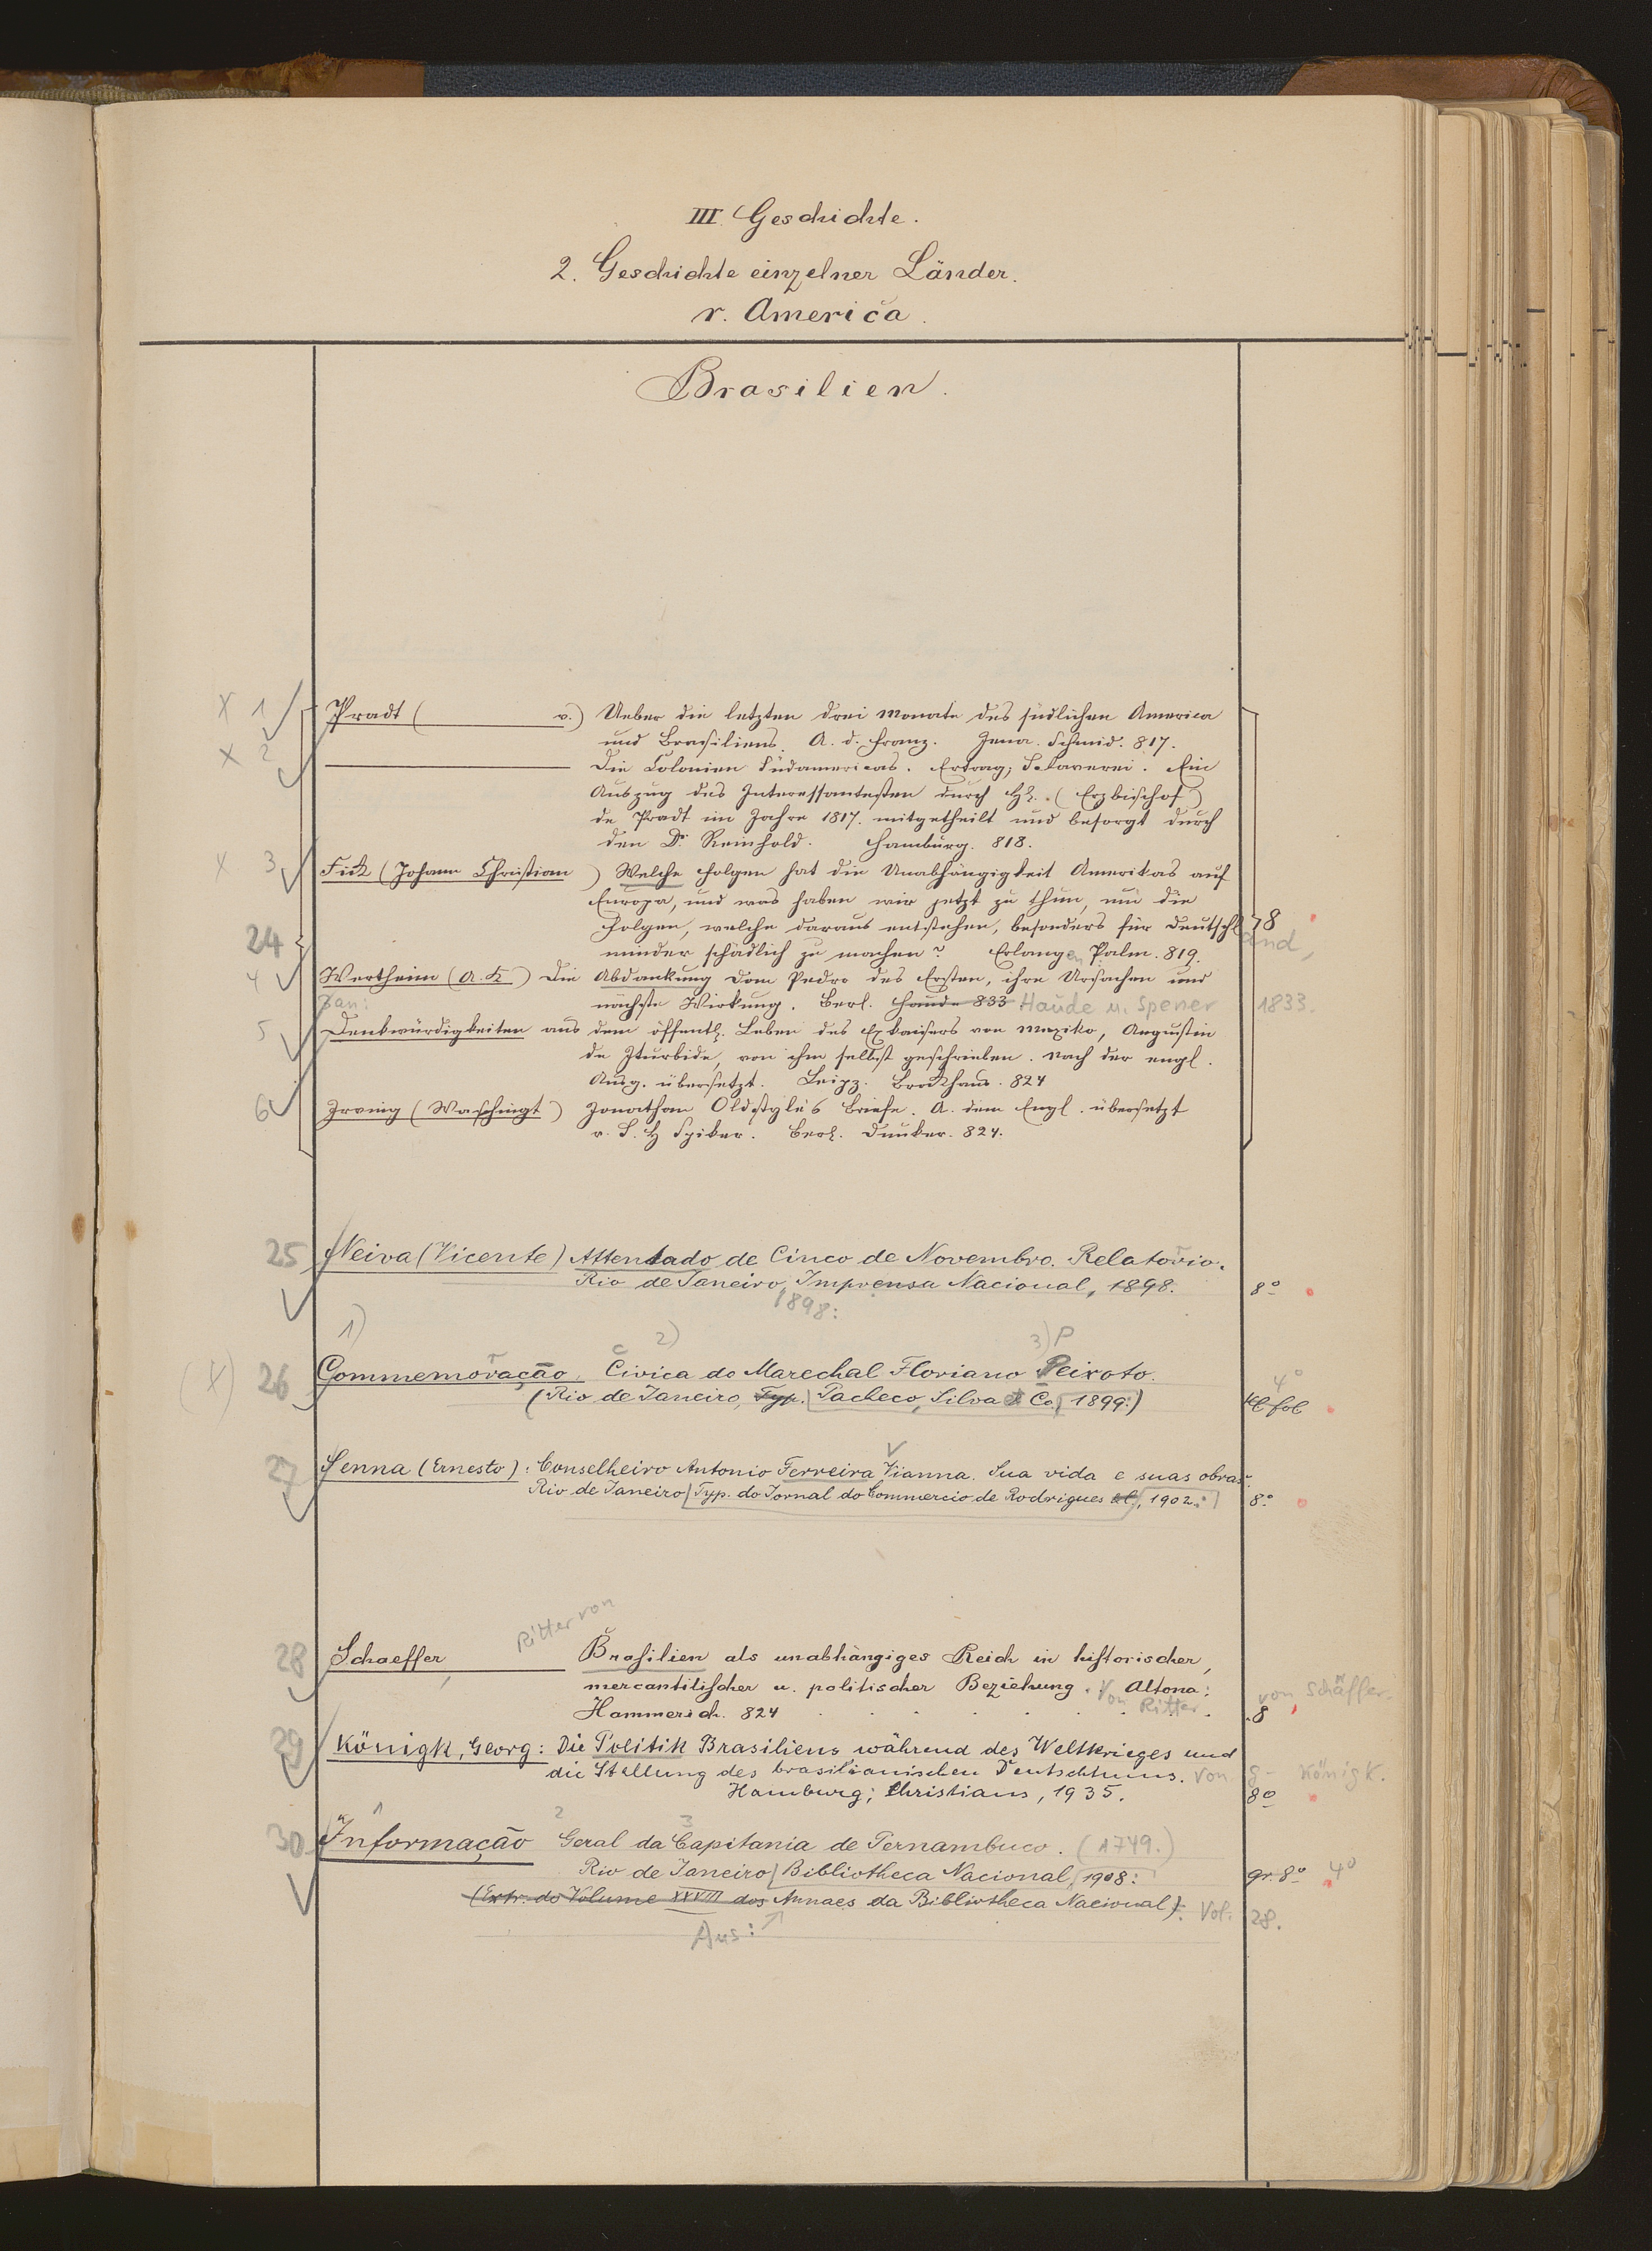 III. Geschichte.
2. Geschichte einzelner Länder.
r. America.
Brasilien.
X 1 Pradt ( v.) Ueber die letzten drei Monate des südlichen America
und Brasiliens. A. d. Franz. Jena. Schmid. 817.
X 2 Die Colonien Südamericas. Ertrag; Sklaverei. Ein
Auszug des Interessantesten durch H. (Erzbischof)
de Pradt im Jahre 1817. mitgetheilt und besorgt durch
den Dr. Reinhold. Hamburg. 818.
X 3 Fick (Johann Christian ) Welche Folgen hat die Unabhängigkeit Amerikas auf
Europa, und was haben wir jetzt zu thun, um die
Folgen, welche daraus entstehen, besonders für Deutschland, 8
24 minder schädlich zu machen? Erlangen Palm. 819.
4 Wertheim (A. K ) Die Abdankung Dom Pedro des Ersten, ihre Ursachen und
nächste Wirkung. Berl. Haude 833 Haude u. Spener 1833.
5 Denkwürdigkeiten aus dem öffentl. Leben des Exkaisers von Mexiko, Augustin
de Iturbide, von ihm selbst geschrieben. Nach der engl.
Ausg. übersetzt. Leipz. Brockhaus. 824
6 Irving (Waschingt ) Jonathan Oldstyle's Briefe. A. dem Engl. übersetzt
v. S. H Spiker. Berl. Dunker. 824.
25 Neiva (Vicente) Attentado de Cinco de Novembro. Relatorio.
Rio de Janeiro, Imprensa Nacional, 1898. 8º
1898:
1) 2) 3) P
(X) 26 Commemoração Civica do Marechal Floriano Peixoto. 4º
(Rio de Janeiro, Typ. Pacheco, Silva & Co. 1899:) Kl fol
27 Senna (Ernesto): Conselheiro Antonio Ferreira Vianna. Sua vida e suas obras.
Rio de Janeiro Typ. do Jornal do Commercio de Rodrigues &C, 1902. 8º
Ritter von
28 Schaeffer, Brasilien als unabhängiges Reich in historischer,
mercantilischer u. politischer Beziehung. Von Altona: von Schäffer.
Hammerich. 824 Ritter 8
29 Königk, Georg: Die Politik Brasiliens während des Weltkrieges und
die Stellung des brasilianischen Deutschtums. Von G- Königk.
Hamburg; Christians, 1935. 8º
2 3
30 Informação Geral da Capitania de Pernambuco. (1749.)
Rio de Janeiro Bibliotheca Nacional, 1908: gr. 8º 4º
(Extr. do Volume XXVIII dos Annaes da Bibliotheca Nacional). Vol. 28.
Aus: